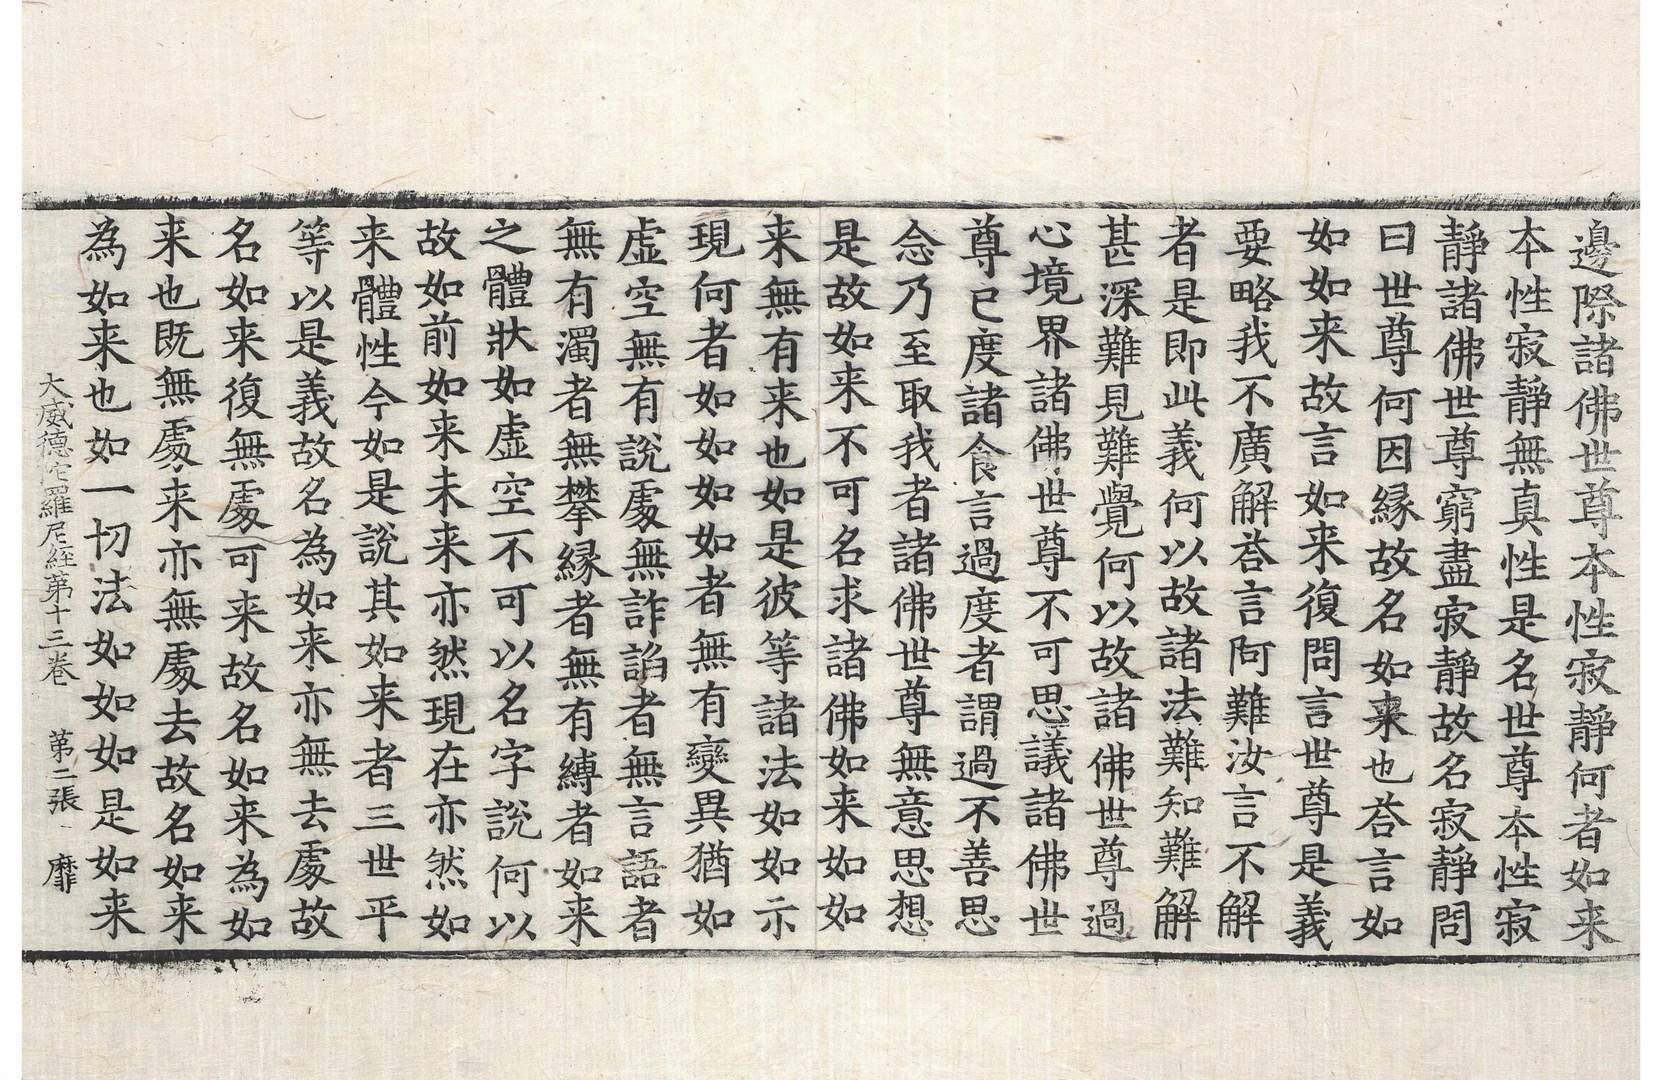 邊際諸佛世尊本性寂靜何者如来
本性寂靜無真性是名世尊本性寂
靜諸佛世尊窮盡寂靜故名寂靜問
曰世尊何因縁故名如来也荅言如
如如来故言如来復問言世尊是義
要略我不廣解荅言阿難汝言不解
者是即此義何以故諸法難知難解
甚深難見難覺何以故諸佛世尊過
心境界諸佛世尊不可思議諸佛世
尊已度諸食言過度者謂過不善思
念乃至取我者諸佛世尊無意思想
是故如来不可名求諸佛如来如如
来無有来也如是彼等諸法如如示
現何者如如如如者無有變異猶如
虚空無有說䖏無詐諂者無言語者
無有濁者無攀縁者無有縛者如来
之體狀如虚空不可以名字說何以
故如前如来未来亦然現在亦然如
来體性今如是說其如来者三世平
等以是義故名為如来亦無去䖏故
名如来復無䖏可来故名如来為如
来也既無䖏来亦無䖏去故名如来
為如来也如一切法如如如是如来
大威德陀羅尼経第十三巻　第二張　靡